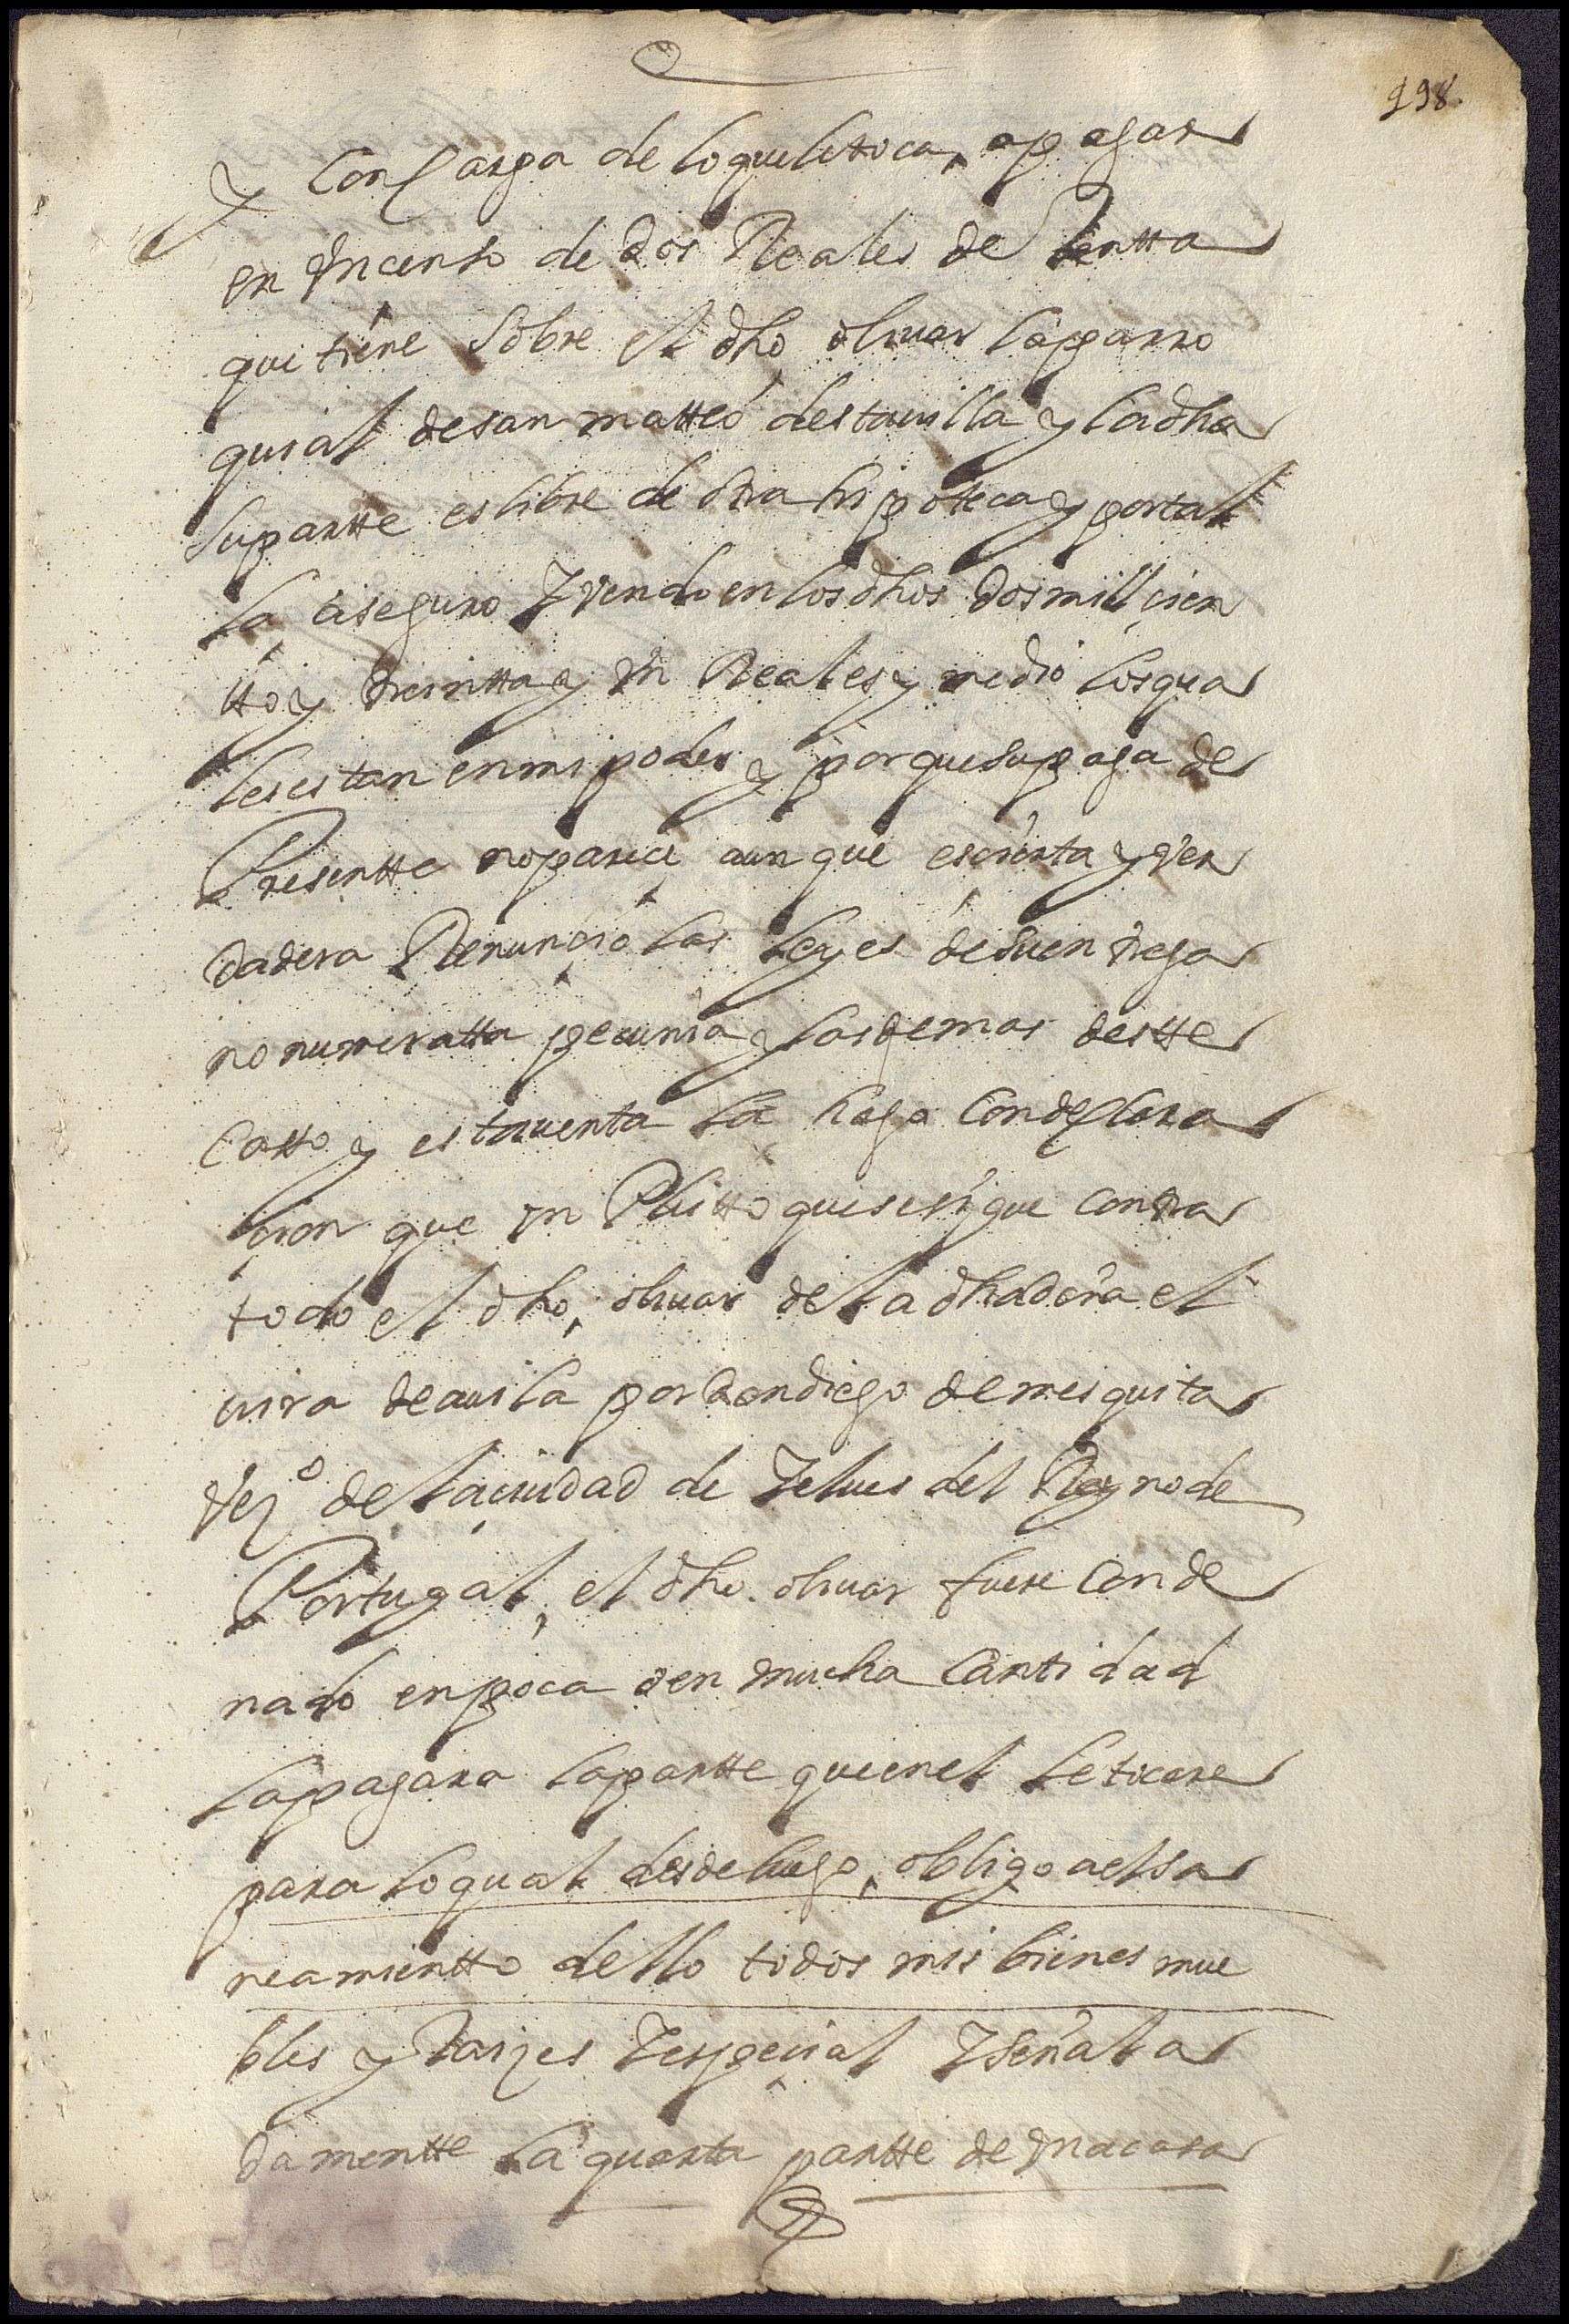 998.
y Con Carga de lo que le ttoca, a pagar
en Vn censo de dos Reales de Rentta
que tiene sobre el dho, oliuar la parro
quial de san matteo destauilla y la dha
su partte es libre de otra hipoteca y por tal
la aseguro Y vendo en los dhos dos mill çien
tto y treintta y Vn Reales y medio los qua
les estan en mi poder y porque su paga de
Presentte no pareçe aunque es çierta y ver
dadera Renunçio las leyes de su entrega
no numeratta pecunia y las demas destte
Casso y esta uenta la hago Con declara
çion que en Pleitto que se sigue contra
todo el dho, oliuar de la dha doña el
uira de auila por Don diego de mesquita
Vezº de la çiudad de Yelues del Reyno de
Portugal, el dho. oliuar fuere Conde
nado en poca o en mucha Cantidad
la pagara la partte que en el le tocare
para lo qual desde luego, obligo a el sa
neamientto dello todos mis bienes mue
bles y Raizes Y espeçial Y señala
damentte la quarta partte de Vna casa